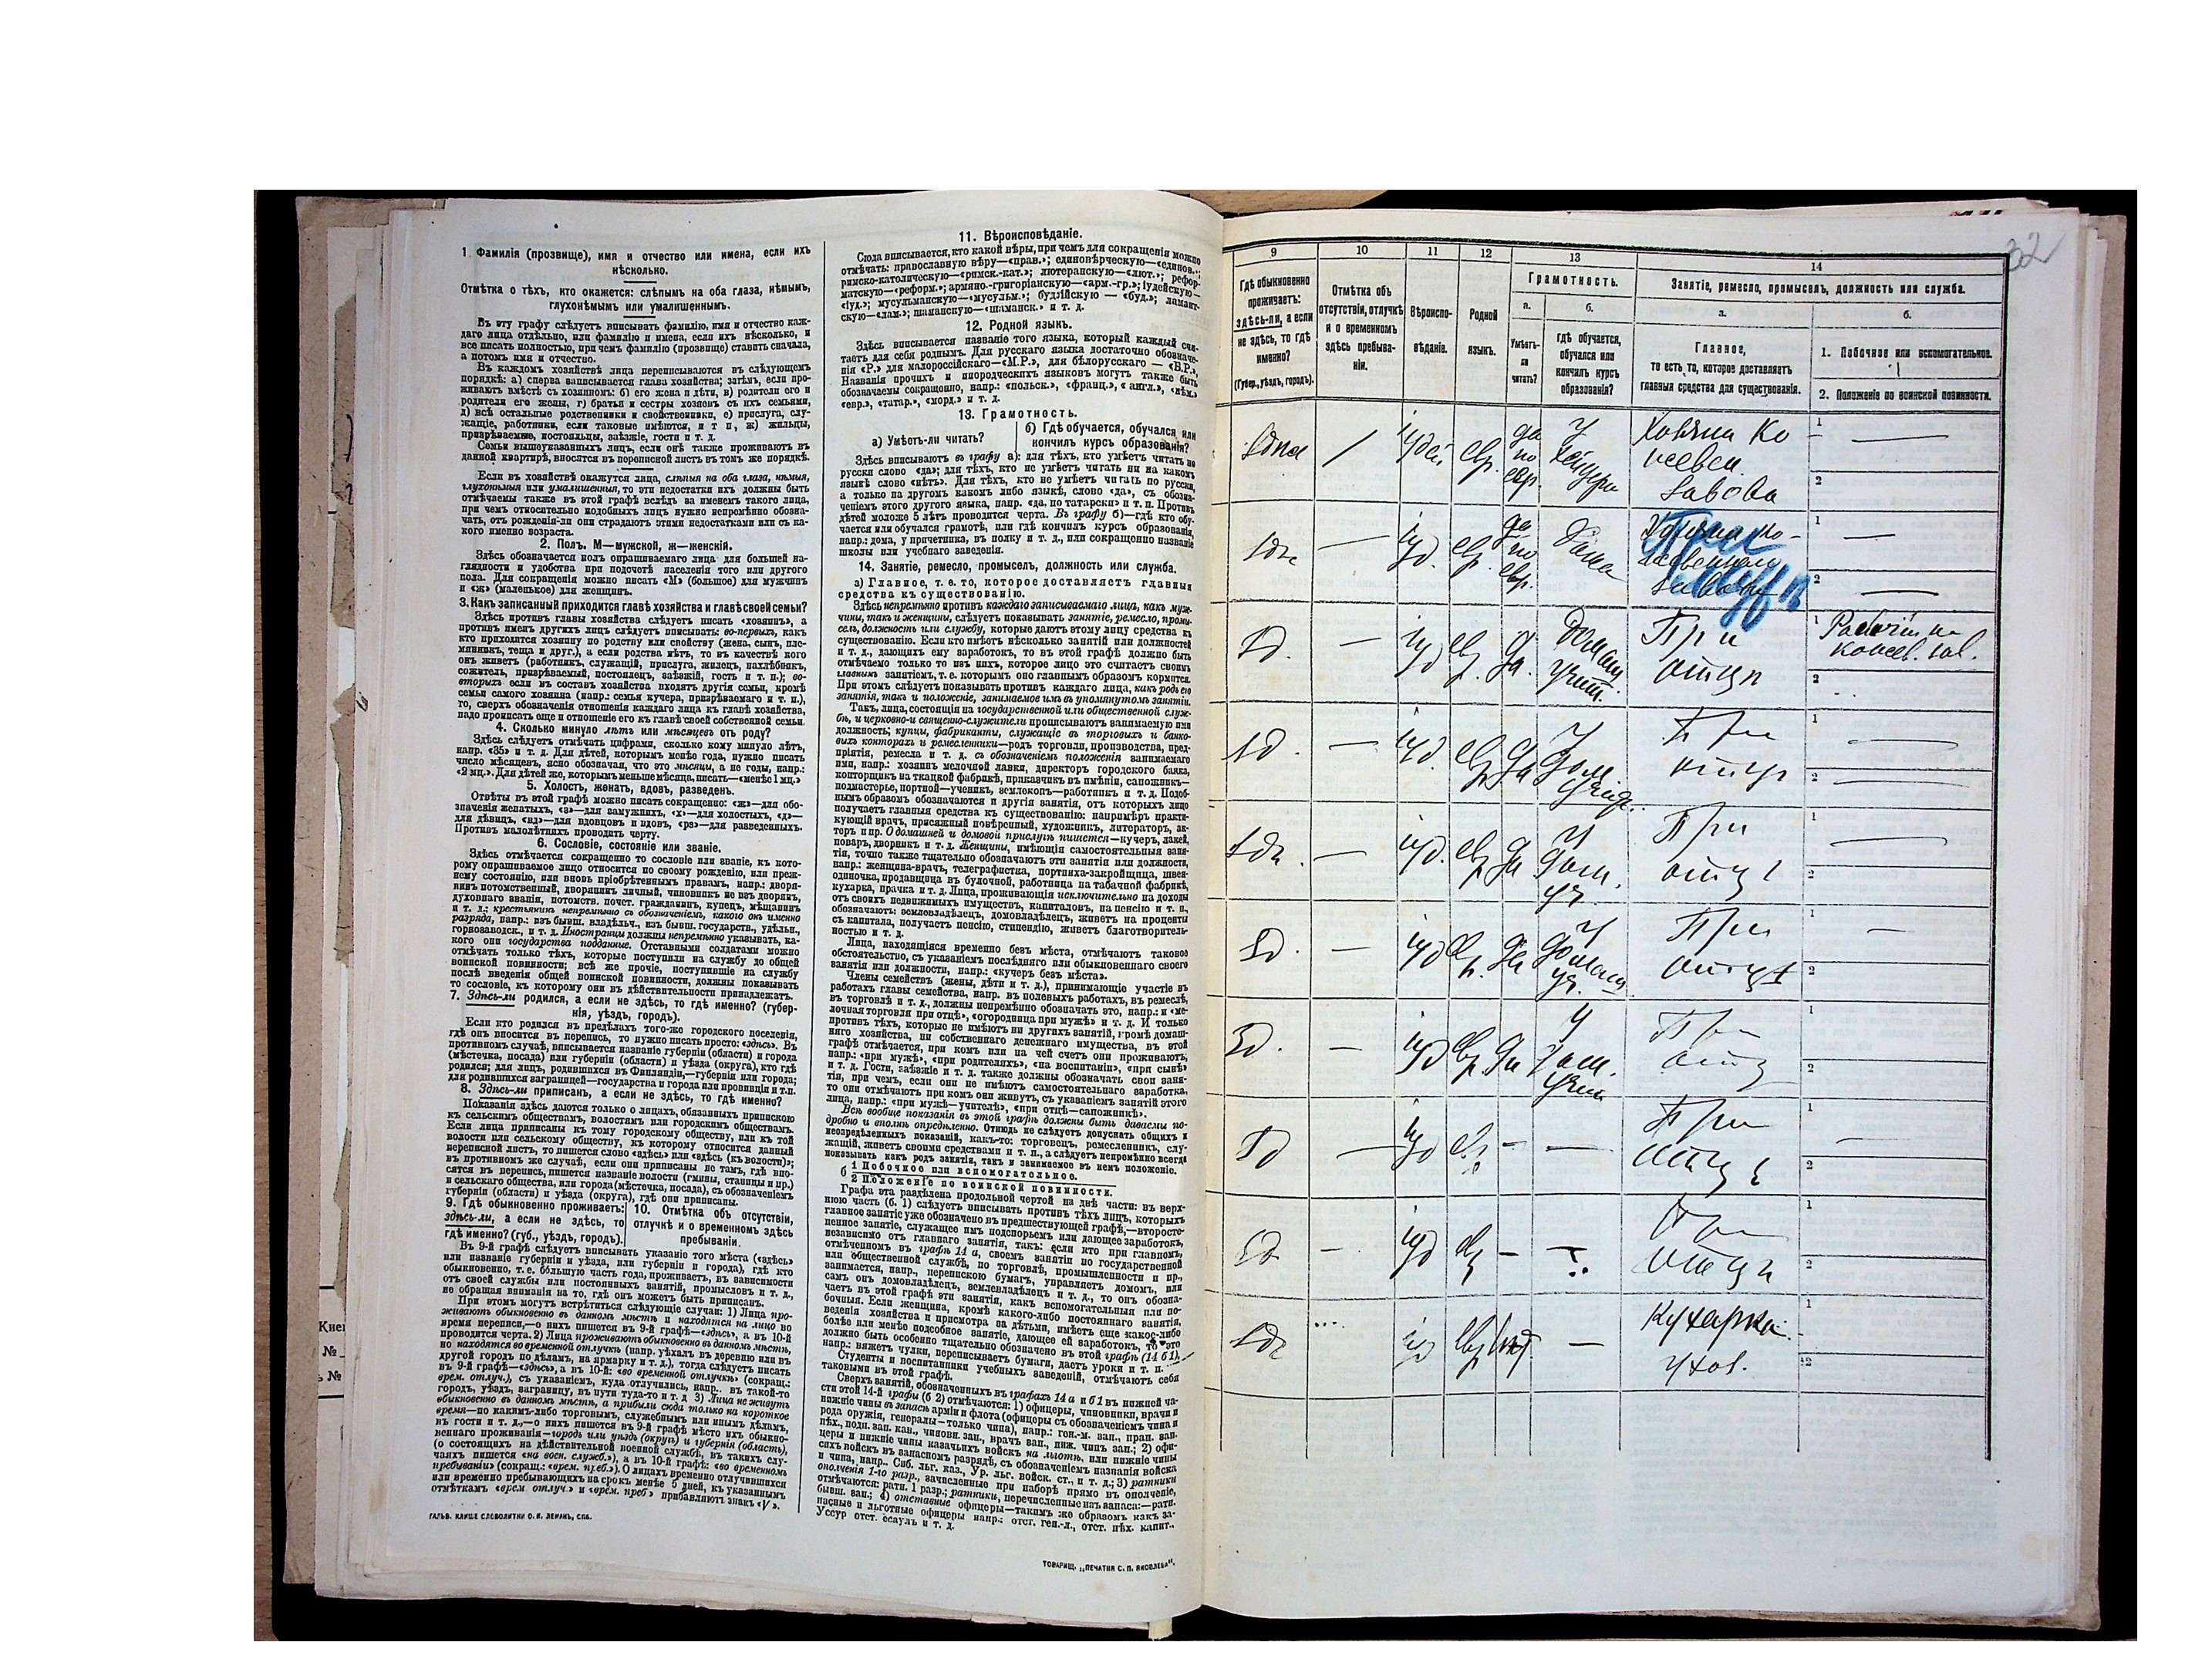 1 Фамилія (прозвище), имя и отчество или имена, если ихъ
нѣсколько.
Отмѣтка о тѣхъ, кто окажется: слѣпымъ на оба глаза, нѣмымъ,
глухонѣмымъ или умалишеннымъ.
Въ эту графу слѣдуетъ вписывать фамилію, имя и отчество каж-
даго лица отдѣльно, или фамилію и имена, если ихъ нѣсколько, и
все писать полностью, при чемъ фамилію (прозвище) ставить сначала,
а потомъ имя и отчество.
Въ каждомъ хозяйствѣ лица переписываются въ слѣдующемъ
порядкѣ: а) сперва записывается глава хозяйства; затѣмъ, если про-
живаютъ вмѣстѣ съ хозяиномъ: б) его жена и дѣти, в) родители его и
родители его жены, г) братья и сестры хозяевъ съ ихъ семьями,
д) всѣ остальные родственники и свойственники, е) прислуга, слу-
жащіе, работники, если таковые имѣются, и т п, ж) жильцы,
призрѣваемые, постояльцы, заѣзжіе, гости и т. д.
Семьи вышеуказанныхъ лицъ, если онѣ также проживаютъ въ
данной квартирѣ, вносятся въ переписной листъ въ томъ же порядкѣ.
Если въ хозяйствѣ окажутся лица, слѣпыя на оба глаза, нѣмыя,
глухонѣмыя или умалишенныя, то эти недостатки ихъ должны быть
отмѣчаемы также въ этой графѣ вслѣдъ за именемъ такого лица,
при чемъ относительно подобныхъ лицъ нужно непремѣнно обозна-
чать, отъ рожденія-ли они страдаютъ этими недостатками или съ ка-
кого именно возраста.
2. Полъ. М—мужской, ж—женскій.
Здѣсь обозначается полъ опрашиваемаго лица для большей на-
глядности и удобства при подсчетѣ населенія того или другого
пола. Для сокращенія можно писать «М» (большое) для мужчинъ
и «ж» (маленькое) для женщинъ.
3. Какъ записанный приходится главѣ хозяйства и главѣ своей семьи?
Здѣсь противъ главы хозяйства слѣдуетъ писать «хозяинъ», а
противъ именъ другихъ лицъ слѣдуетъ вписывать: во-первыхъ, какъ
кто приходится хозяину по родству или свойству (жена, сынъ, пле-
мянникъ, теща и друг.), а если родства нѣтъ, то въ качествѣ кого
онъ живетъ (работникъ, служащій, прислуга, жилецъ, нахлѣбникъ,
сожитель, призрѣваемый, постоялецъ, заѣзжій, гость и т. п.); во-
вторыхъ если въ составъ хозяйства входятъ другія семьи, кромѣ
семьи самого хозяина (напр.: семья кучера, призрѣваемаго и т. п.),
то, сверхъ обозначенія отношенія каждаго лица къ главѣ хозяйства,
надо прописать еще и отношеніе его къ главѣ своей собственной семьи.
4. Сколько минуло лѣтъ или мѣсяцевъ отъ роду?
Здѣсь слѣдуетъ отмѣчать цифрами, сколько кому минуло лѣтъ,
напр. «35» и т. д. Для дѣтей, которымъ менѣе года, нужно писать
число мѣсяцевъ, ясно обозначая, что это мѣсяцы, а не годы, напр.:
«2 мц.». Для дѣтей же, которымъ меньше мѣсяца, писать—«менѣе 1 мц.»
5. Холостъ, женатъ, вдовъ, разведенъ.
Отвѣты въ этой графѣ можно писать сокращенно: «ж»—для обо-
значенія женатыхъ, «з»—для замужнихъ, «х»—для холостыхъ, «д»—
для дѣвицъ, «вд»—для вдовцовъ и вдовъ, «рз»—для разведенныхъ.
Противъ малолѣтнихъ проводить черту.
6. Сословіе, состояніе или званіе.
Здѣсь отмѣчается сокращенно то сословіе или званіе, къ кото-
рому опрашиваемое лицо относится по своему рожденію, или преж-
нему состоянію, или вновь пріобрѣтеннымъ правамъ, напр.: дворя-
нинъ потомственный, дворянинъ личный, чиновникъ не изъ дворянъ,
духовнаго званія, потомств. почет. гражданинъ, купецъ, мѣщанинъ
и т. д.; крестьянинъ непремѣнно съ обозначеніемъ, какого онъ именно
разряда, напр.: изъ бывш. владѣльч., изъ бывш. государств., удѣльн.,
горнозаводск., и т. д. Иностранцы должны непремѣнно указывать, ка-
кого они государства подданные. Отставными солдатами можно
отмѣчать только тѣхъ, которые поступили на службу до общей
воинской повинности; всѣ же прочіе, поступившіе на службу
послѣ введенія общей воинской повинности, должны показывать
то сословіе, къ которому они въ дѣйствительности принадлежатъ.
7. Здѣсь-ли родился, а если не здѣсь, то гдѣ именно? (губер-
нія, уѣздъ, городъ).
Если кто родился въ предѣлахъ того-же городского поселенія,
гдѣ онъ вносится въ перепись, то нужно писать просто: «здѣсь». Въ
противномъ случаѣ, вписывается названіе губерніи (области) и города
(мѣстечка, посада) или губерніи (области) и уѣзда (округа), кто гдѣ
родился; для лицъ, родившихся въ Финляндіи,—губерніи или города;
для родившихся заграницей—государства и города или провинціи и т.п.
8. Здѣсь-ли приписанъ, а если не здѣсь, то гдѣ именно?
Показанія здѣсь даются только о лицахъ, обязанныхъ припискою
къ сельскимъ обществамъ, волостямъ или городскимъ обществамъ.
Если лица приписаны къ тому городскому обществу, или къ той
волости или сельскому обществу, къ которому относится данный
переписной листъ, то пишется слово «здѣсь» или «здѣсь (къ волости)»;
въ противномъ же случаѣ, если они приписаны не тамъ, гдѣ вно-
сятся въ перепись, пишется названіе волости (гмины, станицы и пр.)
и сельскаго общества, или города (мѣстечка, посада), съ обозначеніемъ
губерніи (области) и уѣзда (округа), гдѣ они приписаны.
9. Гдѣ обыкновенно проживаетъ: здѣсь-ли, а если не здѣсь, то гдѣ именно? (губ., уѣздъ, городъ).
10. Отмѣтка объ отсутствіи, отлучкѣ и о временномъ здѣсь пребываніи.
Въ 9-й графѣ слѣдуетъ вписывать указаніе того мѣста («здѣсь»
или названіе губерніи и уѣзда, или губерніи и города), гдѣ кто
обыкновенно, т. е. бо́льшую часть года, проживаетъ, въ зависимости
отъ своей службы или постоянныхъ занятій, промысловъ и т. д.,
не обращая вниманія на то, гдѣ онъ можетъ быть приписанъ.
При этомъ могутъ встрѣтиться слѣдующіе случаи: 1) Лица про-
живаютъ обыкновенно въ данномъ мѣстѣ и находятся на лицо во
время переписи,—о нихъ пишется въ 9-й графѣ—«здѣсь», а въ 10-й
проводится черта. 2) Лица проживаютъ обыкновенно въ данномъ мѣстѣ,
но находятся во временной отлучкѣ (напр. уѣхалъ въ деревню или въ
другой городъ по дѣламъ, на ярмарку и т. д.), тогда слѣдуетъ писать
въ 9-й графѣ—«здѣсь», а въ 10-й: «во временной отлучкѣ» (сокращ.:
врем. отлуч.), съ указаніемъ, куда отлучились, напр., въ такой-то
городъ, уѣздъ, заграницу, въ пути туда-то и т. д 3) Лица не живутъ
обыкновенно въ данномъ мѣстѣ, а прибыли сюда только на короткое
время—по какимъ-либо торговымъ, служебнымъ или инымъ дѣламъ,
въ гости и т. д.,—о нихъ пишется въ 9-й графѣ мѣсто ихъ обыкно-
веннаго проживанія—городъ или уѣздъ (округъ) и губернія (область),
(о состоящихъ на дѣйствительной военной службѣ, въ такихъ слу-
чаяхъ пишется «на воен. служб.»), а въ 10-й графѣ: «во временномъ
пребываніи» (сокращ.: «врем. преб.»). О лицахъ временно отлучившихся
или временно пребывающихъ на срокъ менѣе 5 дней, къ указаннымъ
отмѣткамъ «врем. отлуч.» и «врем. преб» прибавляютъ знакъ «V».
ГАЛЬВ. КЛИШЕ СЛОВОЛИТНИ О. И. ЛЕМАНЪ, СПБ.
11. Вѣроисповѣданіе.
Сюда вписывается, кто какой вѣры, при чемъ для сокращенія можно
отмѣчать: православную вѣру—«прав.»; единовѣрческую—«единов.»;
римско-католическую—«римск.-кат.»; лютеранскую—«лют.»; рефор-
матскую—«реформ.»; армяно.-григоріанскую—«арм.-гр.»; іудейскую—
«іуд.»; мусульманскую—«мусульм.»; буддійскую — «буд.»; ламаит-
скую—«лам.»; шаманскую—«шаманск.» и т. д.
12. Родной языкъ.
Здѣсь вписывается названіе того языка, который каждый счи-
таетъ для себя роднымъ. Для русскаго языка достаточно обозначе-
нія «Р.» для малороссійскаго—«М.Р.», для бѣлорусскаго — «Б.Р.».
Названія прочихъ и инородческихъ языковъ могутъ также быть
обозначаемы сокращенно, напр.: «польск.», «франц.», «англ.», «нѣм.»
«евр.», «татар.», «морд.» и т. д.
13. Грамотность.
а) Умѣетъ-ли читать?
б) Гдѣ обучается, обучался или кончилъ курсъ образованія?
Здѣсь вписываютъ въ графу а): для тѣхъ, кто умѣетъ читать по
русски слово «да»; для тѣхъ, кто не умѣетъ читать ни на какомъ
языкѣ слово «нѣтъ». Для тѣхъ, кто не умѣетъ читать по русски,
а только на другомъ какомъ либо языкѣ, слово «да», съ обозна-
ченіемъ этого другого языка, напр. «да, по татарски» и т. п. Противъ
дѣтей моложе 5 лѣтъ проводится черта. Въ графу б)—гдѣ кто обу-
чается или обучался грамотѣ, или гдѣ кончилъ курсъ образованія,
напр.: дома, у причетника, въ полку и т. д., или сокращенно названіе
школы или учебнаго заведенія.
14. Занятіе, ремесло, промыселъ, должность или служба.
а) Главное, т. е. то, которое доставляетъ главныя
средства къ существованію.
Здѣсь непремѣнно противъ каждаго записываемаго лица, какъ муж-
чины, такъ и женщины, слѣдуетъ показывать занятіе, ремесло, промы-
селъ, должность или службу, которые даютъ этому лицу средства къ
существованію. Если кто имѣетъ нѣсколько занятій или должностей
и т. д., дающихъ ему заработокъ, то въ этой графѣ должно быть
отмѣчаемо только то изъ нихъ, которое лицо это считаетъ своимъ
главнымъ занятіемъ, т. е. которымъ оно главнымъ образомъ кормится.
При этомъ слѣдуетъ показывать противъ каждаго лица, какъ родъ его
занятія, такъ и положеніе, занимаемое имъ въ упомянутомъ занятіи.
Такъ, лица, состоящія на государственной или общественной служ-
бѣ, и церковно-и священно-служители прописываютъ занимаемую ими
должность; купцы, фабриканты, служащіе въ торговыхъ и банко-
выхъ конторахъ и ремесленники—родъ торговли, производства, пред-
пріятія, ремесла и т. д. съ обозначеніемъ положенія занимаемаго
ими, напр.: хозяинъ мелочной лавки, директоръ городского банка,
конторщикъ на ткацкой фабрикѣ, приказчикъ въ имѣніи, сапожникъ—
подмастерье, портной—ученикъ, землекопъ—работникъ и т. д. Подоб-
нымъ образомъ обозначаются и другія занятія, отъ которыхъ лицо
получаетъ главныя средства къ существованію: напримѣръ практи-
кующій врачъ, присяжный повѣренный, художникъ, литераторъ, ак-
теръ и пр. О домашней и домовой прислугѣ пишется—кучеръ, лакей,
поваръ, дворникъ и т. д. Женщины, имѣющія самостоятельныя заня-
тія, точно также тщательно обозначаютъ эти занятія или должности,
напр.: женщина-врачъ, телеграфистка, портниха-закройщица, швея-
одиночка, продавщица въ булочной, работница на табачной фабрикѣ,
кухарка, прачка и т. д. Лица, проживающія исключительно на доходы
отъ своихъ недвижимыхъ имуществъ, капиталовъ, на пенсію и т. п.,
обозначаютъ: землевладѣлецъ, домовладѣлецъ, живетъ на проценты
съ капитала, получаетъ пенсію, стипендію, живетъ благотворитель-
ностью и т. д.
Лица, находящіяся временно безъ мѣста, отмѣчаютъ таковое
обстоятельство, съ указаніемъ послѣдняго или обыкновеннаго своего
занятія или должности, напр.: «кучеръ безъ мѣста».
Члены семействъ (жены, дѣти и т. д.), принимающіе участіе въ
работахъ главы семейства, напр. въ полевыхъ работахъ, въ ремеслѣ,
въ торговлѣ и т. д., должны непремѣнно обозначать это, напр.: и «ме-
лочная торговля при отцѣ», «огородница при мужѣ» и т. д. И только
противъ тѣхъ, которые не имѣютъ ни другихъ занятій, кромѣ домаш-
няго хозяйства, ни собственнаго денежнаго имущества, въ этой
графѣ отмѣчается, при комъ или на чей счетъ они проживаютъ,
напр.: «при мужѣ», «при родителяхъ», «на воспитаніи», «при сынѣ»
и т. д. Гости, заѣзжіе и т. д. также должны обозначать свои заня-
тія, при чемъ, если они не имѣютъ самостоятельнаго заработка,
то они отмѣчаютъ при комъ они живутъ, съ указаніемъ занятій этого
лица, напр.: «при мужѣ—учителѣ», «при отцѣ—сапожникѣ».
Всѣ вообще показанія въ этой графѣ должны быть даваемы по-
дробно и вполнѣ опредѣленно. Отнюдь не слѣдуетъ допускать общихъ и
неопредѣленныхъ показаній, какъ-то: торговецъ, ремесленникъ, слу-
жащій, живетъ своими средствами и т. п., а слѣдуетъ непремѣнно всегда
показывать какъ родъ занятія, такъ и занимаемое въ немъ положеніе.
б 1 Побочное или вспомогательное.
2 Положеніе по воинской повинности.
Графа эта раздѣлена продольной чертой на двѣ части: въ верх-
нюю часть (б. 1) слѣдуетъ вписывать противъ тѣхъ лицъ, которыхъ
главное занятіе уже обозначено въ предшествующей графѣ,—второсте-
пенное занятіе, служащее имъ подспорьемъ или дающее заработокъ,
независимо отъ главнаго занятія, такъ: если кто при главномъ,
отмѣченномъ въ графѣ 14 а, своемъ занятіи по государственной
или общественной службѣ, по торговлѣ, промышленности и пр.,
занимается, напр., перепискою бумагъ, управляетъ домомъ, или
самъ онъ домовладѣлецъ, землевладѣлецъ и т. д., то онъ обозна-
чаетъ въ этой графѣ эти занятія, какъ вспомогательныя или по-
бочныя. Если женщина, кромѣ какого-либо постояннаго занятія,
веденія хозяйства и присмотра за дѣтьми, имѣетъ еще какое-либо
болѣе или менѣе подсобное занятіе, дающее ей заработокъ, то это
должно быть особенно тщательно обозначено въ этой графѣ (14 б 1),
напр.: вяжетъ чулки, переписываетъ бумаги, даетъ уроки и т. п.
Студенты и воспитанники учебныхъ заведеній, отмѣчаютъ себя
таковыми въ этой графѣ.
Сверхъ занятій, обозначенныхъ въ графахъ 14 а и б 1 въ нижней ча-
сти этой 14-й графы (б 2) отмѣчаются: 1) офицеры, чиновники, врачи и
нижніе чины въ запасѣ арміи и флота (офицеры съ обозначеніемъ чина и
рода оружія, генералы—только чина), напр.: ген.-м. зап., прап. зап.
пѣх., подп. зап. кав., чиновн. зап., врачъ зап., ниж. чинъ зап.; 2) офи-
церы и нижніе чины казачьихъ войскъ на льготѣ, или нижніе чины
сихъ войскъ въ запасномъ разрядѣ, съ обозначеніемъ названія войска
и чина, напр., Сиб. льг. каз., Ур. льг. войск. ст., и т. д.; 3) ратники
ополченія 1-го разр., зачисленные при наборѣ прямо въ ополченіе,
отмѣчаются: ратн. 1 разр.; ратники, перечисленные изъ запаса:—ратн.
бывш. зап.; 4) отставные офицеры—такимъ же образомъ какъ за-
пасные и льготные офицеры напр.: отст. ген.-л., отст. пѣх. капит.,
Уссур отст. есаулъ и т. д.
ТОВАРИЩ. „ПЕЧАТНЯ С. П. ЯКОВЛЕВА“.
Кіев
№
№
32
9 10 11 12 13 14
Гдѣ обыкновенно
проживаетъ:
здѣсь-ли, а если
не здѣсь, то гдѣ
именно?
(Губер., уѣздъ, городъ).
Отмѣтка объ
отсутствіи, отлучкѣ
и о временномъ
здѣсь пребыва-
ніи.
Вѣроиспо-
вѣданіе.
Родной
языкъ.
Грамотность.
а.
Умѣетъ-
ли
читать?
б.
гдѣ обучается,
обучался или
кончилъ курсъ
образованія?
Занятіе, ремесло, промыселъ, должность или служба.
а.
Главное,
то есть то, которое доставляетъ
главныя средства для существованія.
б.
1. Побочное или вспомогательное.
2. Положеніе по воинской повинности.
іудей евр. да по евр.
завода
1
2
іуд. евр. да по евр. Дома
1
2
Зд. — іуд евр. да. При отцѣ
1
2
Зд. — іуд. евр да При отцѣ
1
2
— іуд. евр да При отцѣ
1
2
Зд. — іуд евр. да При отцѣ
1
2
Зд. — іуд евр. да При отцѣ
1
2
Зд — іуд евр — — При отцѣ
1
2
Зд — іуд евр — При отцѣ
1
2
іуд евр нѣт. — Кухарка
1
2